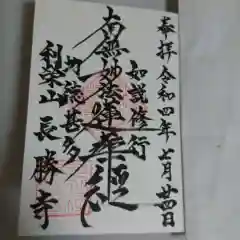 奉拝 令和四年 七月 廿四日
如説修行
南無妙法蓮華経
功徳甚多
利榮山 長勝寺